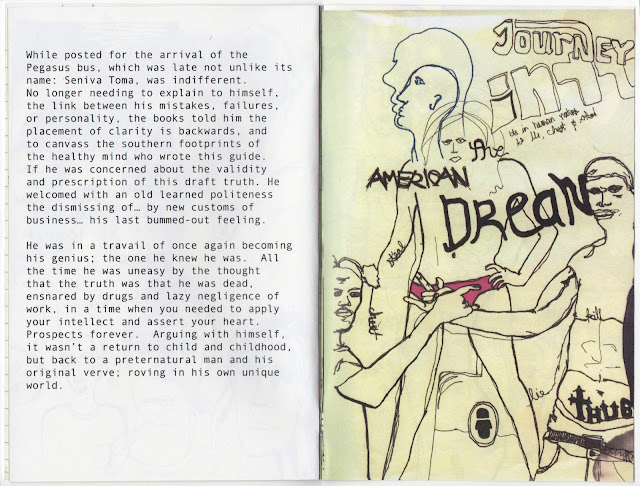 While posted for the arrival of the
Pegasus bus, which was late not unlike its
name: Seniva Toma, was indifferent.
No longer needing to explain to himself,
the link between his mistakes, failures,
or personality, the books told him the
placement of clarity is backwards, and
to canvass the southern footprints of
the healthy mind who wrote this guide.
If he was concerned about the validity
and prescription of this draft truth. He
welcomed with an old learned politeness
the dismissing of… by new customs of
business… his last bummed-out feeling.
He was in a travail of once again becoming
his genius; the one he knew he was.  All
the time he was uneasy by the thought
that the truth was that he was dead,
ensnared by drugs and lazy negligence of
work, in a time when you needed to apply
your intellect and assert your heart.
Prospects forever.  Arguing with himself,
it wasn't a return to child and childhood,
but back to a preternatural man and his
original verve; roving in his own unique
world.
JOURNEY
in
in human
to lie, cheat &
the
AMERICAN
DReaN
steal
cheat
kill
lie
thug